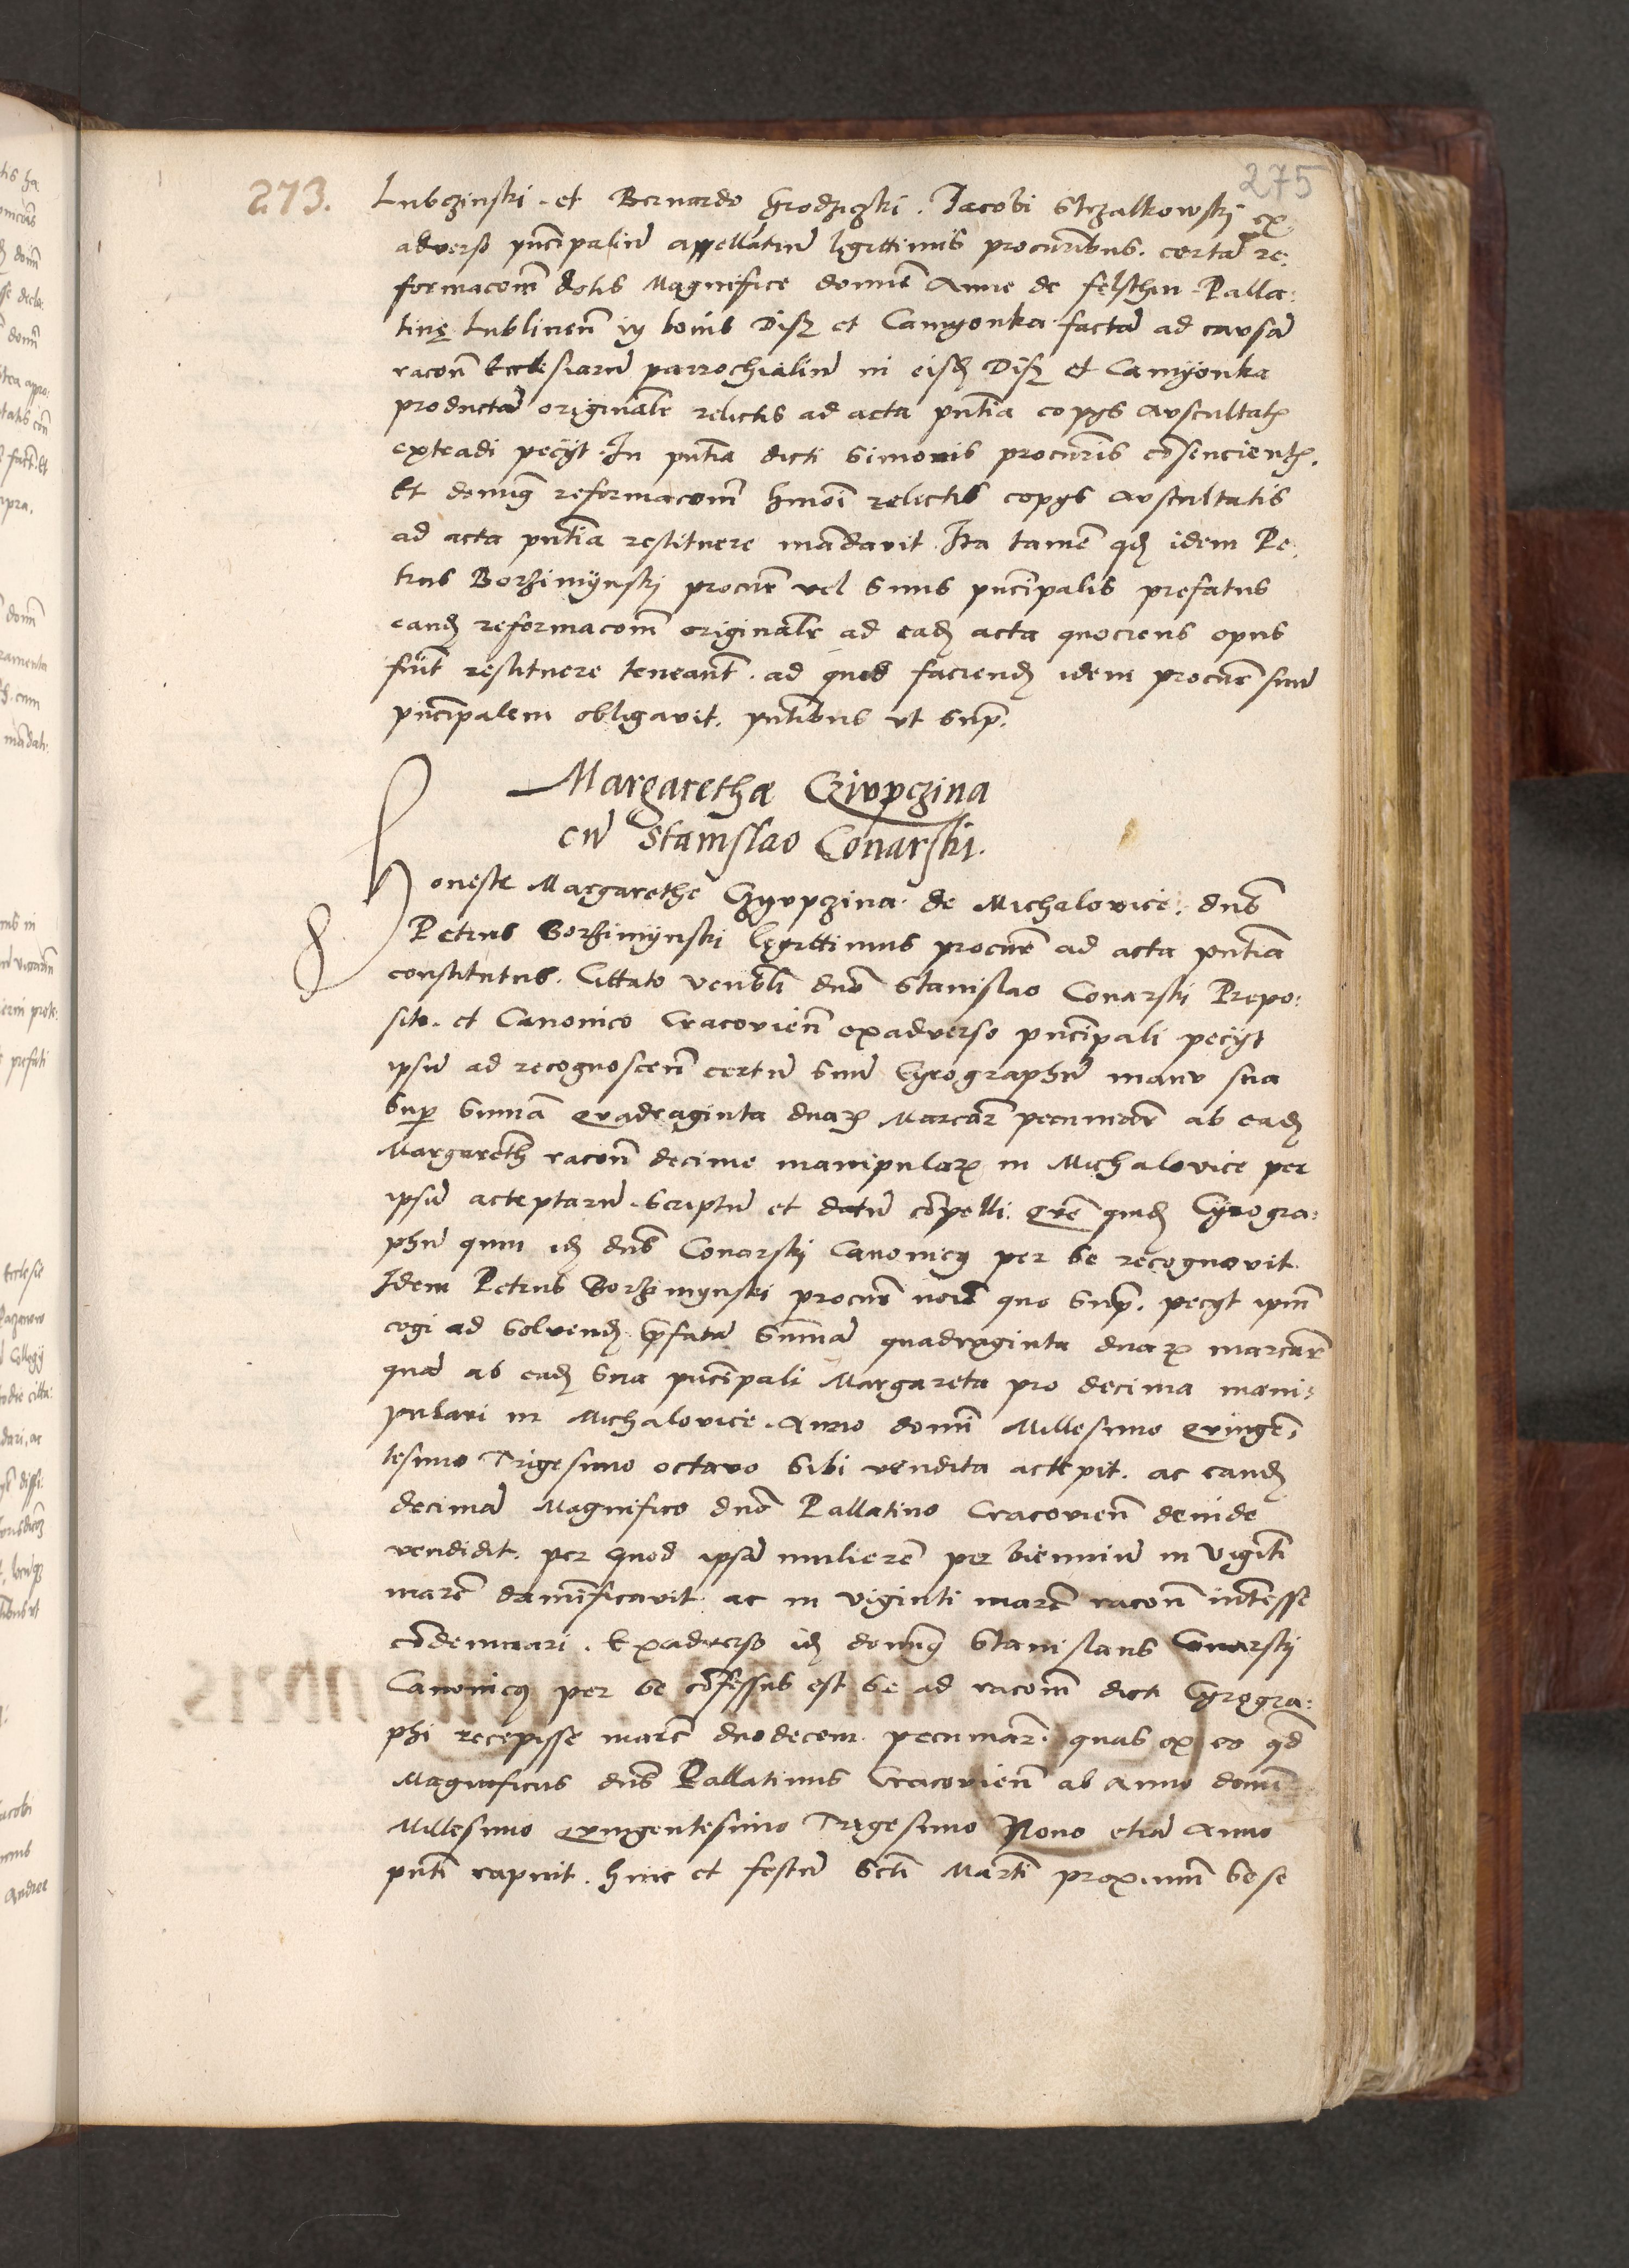 275
273.
Lubczinski . et Bernardo Grodziczki . Jacobi Strzalkowskj ex
adverso prīcipaliū appellatiū legittimis procurībus . certā re:
formacoem̄ dotis Magnifice domine Anne de felsthin Palla:
tinę Lublinen̄ in bonis Disz et Camyonka factā ad causā
racon̄ Ecclesiarū parrochialiū in eisd Disz et Camyonka
productā originalr̄ relictis ad acta pn̄tia copys auscultat
extradi pecyt . In pn̄tia dicti Simonis procurīs cōsencient .
Et domīq reformacoem̄ hm̄oi relictis copys auscultatis
ad acta pn̄tia restituere mādavit . Ita tamē qd idem Pe:
trus Borzimynskj procur̄ vel suus prīcipalis prefatus
eand reformacoem̄ originalr̄ ad ead acta quociens opus
fūit restituere teneant̄ . ad quod faciend idem procur̄ suū
prīcipalem obligavit . pn̄tibus vt supr .
Margarethæ Czirpczina
cū Stanislao Conarski .
Honeste Margarethe Czyrpczina de Michalovice . dn̄s
Petrus Borzimynski legittimus procur̄ ad acta pn̄tia
constitutus . Cittato venēbli dn̄o Stanislao Conarski Prepo:
sito . et Canonico Cracovien̄ exadverso prīcipali pecyt
ipsū ad recognoscen̄ certū suū Cyrographū manu sua
sup summā Quadraginta duar Marcar̄ pecuniar̄ ab ead
Margareth racon̄ decime manipular in Michalovice per
ipsū acceptarū . scriptū et datū cōpelli . Qrē quid Cyrogra:
phū qum id dn̄s Conarskj Canonicq per se recognovit .
Idem Petrus Borzimynski procur̄ noīe quo supr . pecyt ipm̄
cogi ad solvend prefatā summā quadraginta duar marcar̄
quā ab ead sua prīcipali Margareta pro decima mani:
pulari in Michalovice . Anno domī Millesimo Quingē:
tesimo Trigesimo octavo sibi vendita accepit . ac eand
decimā Magnifico dn̄o Pallatino Cracovien̄ deinde
vendidit . per quod ipsā mulierē per bienniū in vigīti
marc̄ damnificavit ac in viginti marc̄ racon̄ intēsse
cōdemnari . Exadverso id domīq Stanislaus Conarskj
Canonicq per se cōfessus est se ad racoem̄ dicti Cyrogra:
phi recepisse marc̄ duodecem pecuniar̄ . quas ex eo qd
Magnificus dn̄s Pallatinus Cracovien̄ ab Anno domī
Millesimo Quingentesimo Trigesimo Nono etiā Anno
pn̄ti rapuit . hinc et festū Scti Martī proximum sese